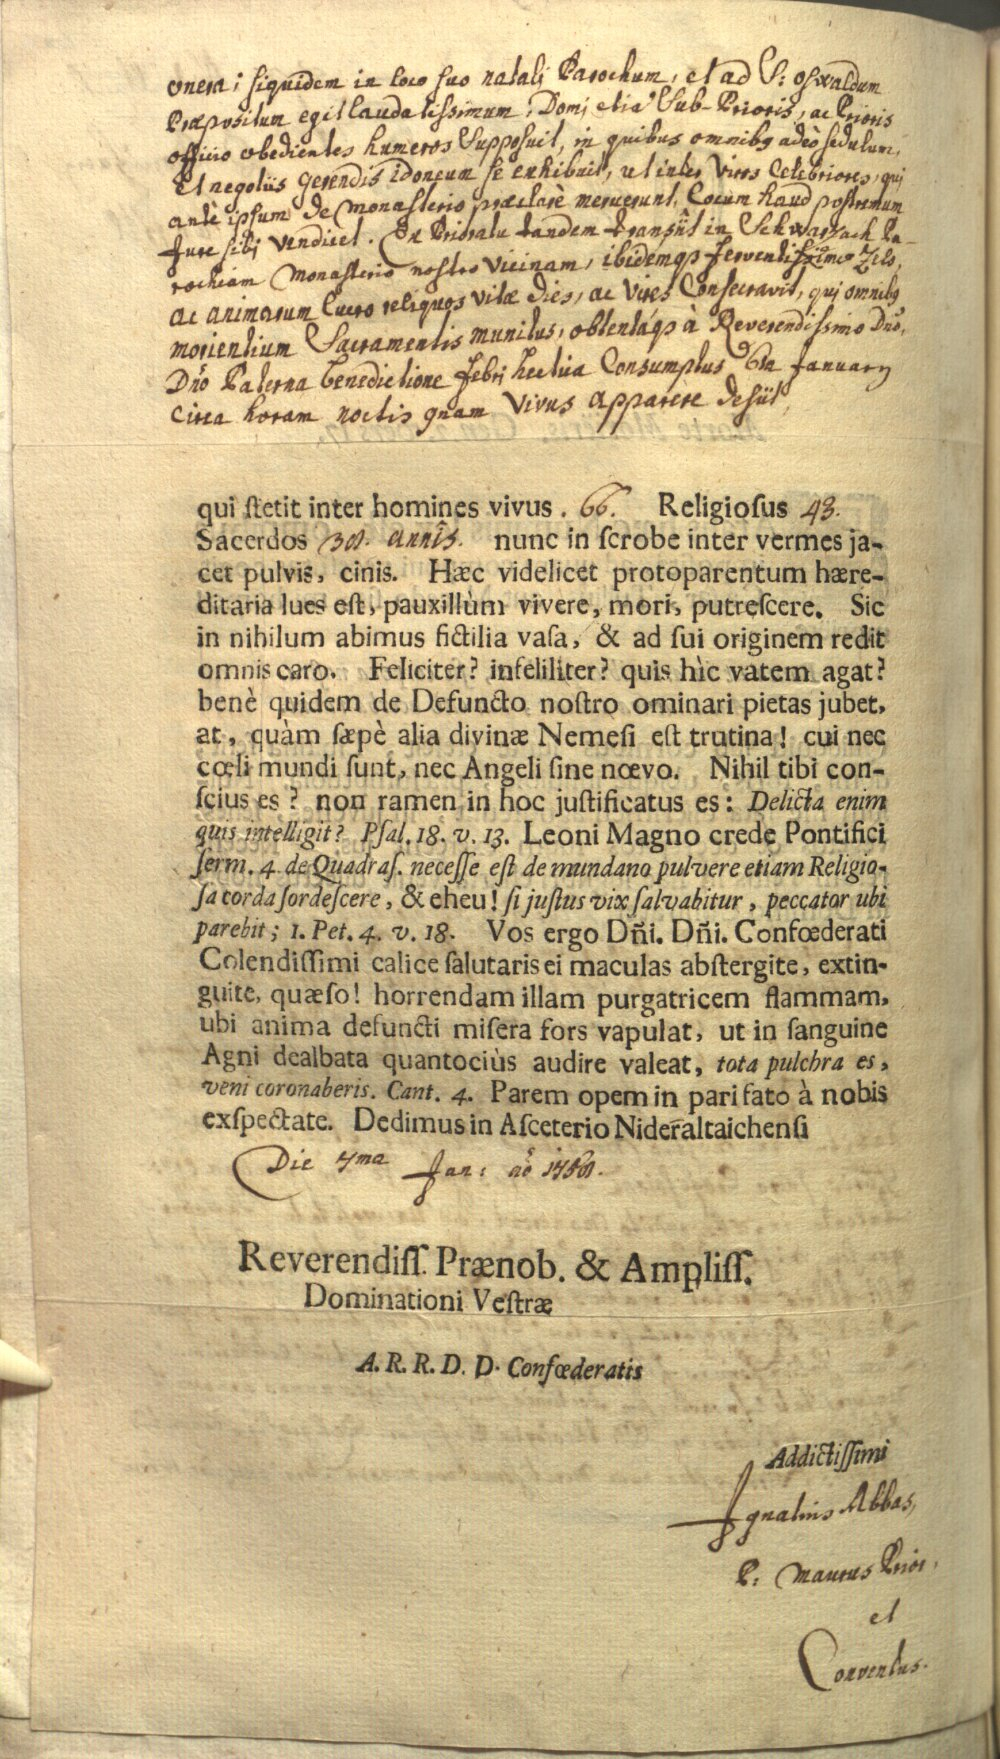 onera; siquidem in loco suo natali Parochum, et ad S: oswaldum
Præpositum egit laudatissimum; Domj etiā Sub-Prioris, ac Prioris
officio obedientes humeros supposuit, in quibus omnibq adeò sedulum,
Et negotiis gerendis idoneum se exhibuit, ut inter Viros Celebriores, qui
antè ipsum de monasterio præclarè meruerunt, Locum haud postremum
Jure sibj vendicet. Ex Prioratu tandem transiit in Schwarzach Pa-
rochiam Monasterio nostro vicinam, ibidemq3 ferventissimo Zelo,
ac animarum lucro reliquos vitæ dies, ac vires Consecravit, qui omnibq
morientium Sacramentis munitus, obtentáq3 à Reverendissimo Dño,
Dño Paterna benedictione febrj hectica Consumptus 6ta January
Circa horam noctis qnam vivus apparere desiit,
qui ſtetit inter homines vivus . 66. Religioſus 43.
Sacerdos annis. nunc in ſcrobe inter vermes ja-
cet pulvis, cinis. Hæc videlicet protoparentum hære-
ditaria lues eſt, pauxillùm vivere, mori, putreſcere. Sic
in nihilum abimus fictilia vaſa, & ad ſui originem redit
omnis caro. Feliciter? infeliliter? quis hìc vatem agat?
benè quidem de Defuncto noſtro ominari pietas jubet,
at, quàm ſæpè alia divinæ Nemeſi eſt trutina! cui nec
cœli mundi ſunt, nec Angeli ſine nœvo. Nihil tibi con-
ſcius es? non ramen in hoc juſtificatus es: Delicta enim
quis intelligit? Pſal. 18. v. 13. Leoni Magno crede Pontifici
ſerm. 4 de Quadraſ. neceſſe eſt de mundano pulvere etiam Religio-
ſa corda ſordeſcere, & eheu! ſi juſtus vix ſalvabitur, peccator ubi
parebit; 1. Pet. 4. v. 18. Vos ergo Dñi. Dñi. Confœderati
Colendiſſimi calice ſalutaris ei maculas abſtergite, extin-
guite, quæſo! horrendam illam purgatricem flammam,
ubi anima defuncti miſera fors vapulat, ut in ſanguine
Agni dealbata quantociùs audire valeat, tota pulchra es,
veni coronaberis. Cant. 4. Parem opem in pari fato à nobis
exſpectate. Dedimus in Aſceterio Nideraltaichenſi
Die 7ma Jan: aõ
Reverendiſſ. Prænob. & Ampliſſ.
Dominationi Veſtræ
A. R. R. D. D. Confœderatis
Addictiſſimi
Ignatius Abbas,
P: Maurus Prior,
et
Conventus.